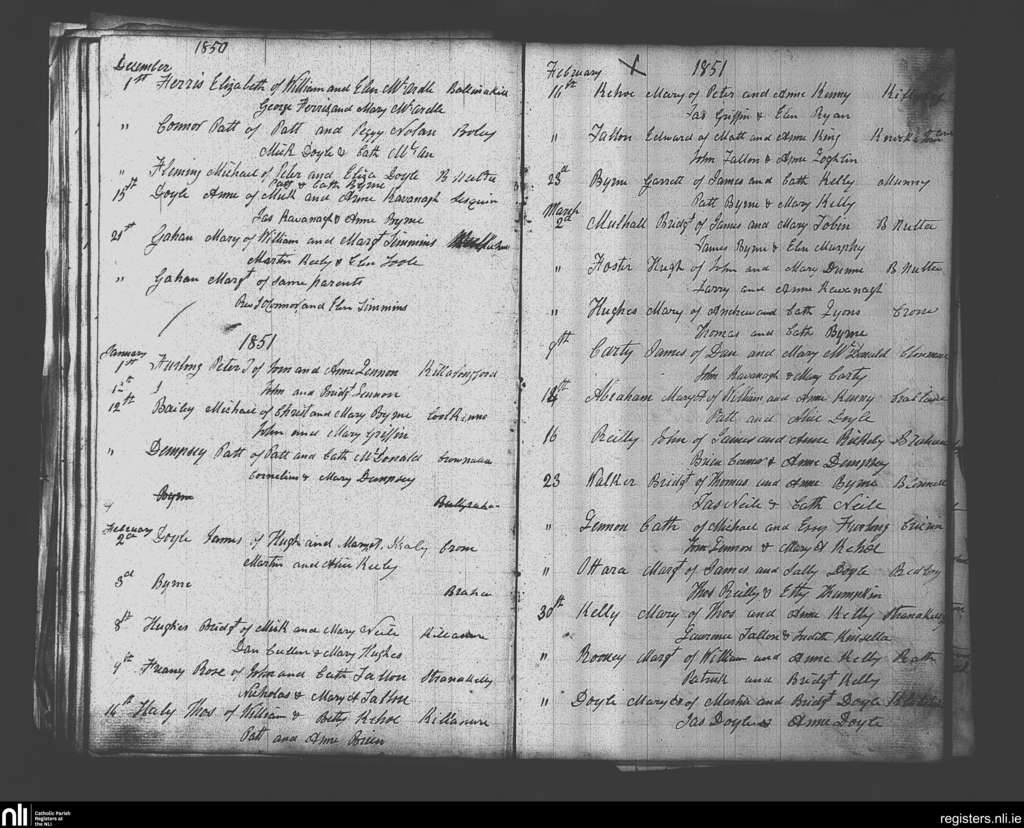 1850
December
1st Ferris Elizabeth of William and Elen McArdle Ballinakill
George Ferris and Mary McArdle
" Connor Patt of Patt and Peggy Nolan Boley
Mick Doyle & Cath
" Fleming Michael of Peter and Eliza Doyle
Patt & Cath Byrne
15th Doyle Anne of Mick and Anne Kavanagh
Jas Kavanagh & Anne Byrne
21st Gahan Mary of William and Margt Simmins
Martin Keely & Elen Toole
" Gahan Margt of same parents
Rev J O'Connor and Elen Simmins
1851
January
1st Furlong Peter J of John and Anne Lennon
John and Bridgt Lennon
12th Bailey Michael of Christ and Mary Byrne
John and Mary Griffin
" Dempsey Patt of Patt and Cath McDonald
Cornelius & Mary Dempsey
Byrne
February
2d Doyle James of Hugh and Margt Crone
Martin and Keely
3d Byrne
8th Hughes Bridgt of Mick and Mary Neile
Dan Cullen & Mary Hughes
9th Rose of John and Cath Tallon Stranakelly
Nicholas & Mary Tallon
16th Thos of William & Betty Kehoe
Patt and Anne Breen
February X 1851
16th Kehoe Mary of Peter and Anne Kenny
Jas Griffin & Elen Ryan
" Tallon Edward of Matt and Anne King
John Tallon & Anne Loghlin
23d Byrne Garrett of James and Cath Kelly Munny
Patt Byrne & Mary Kelly
March
2d Mulhall Bridgt of James and Mary Tobin B Nultia
James Byrne & Elen Murphy
" Foster Hugh of John and Mary Dunne B Nultia
Larry and Anne Kavanagh
" Hughes Mary of Andrew and Cath Lyons Crone
Thomas and Cath Byrne
9th Carty James of Dan and Mary McDonald
John Kavanagh & Mary Carty
Abraham Mary of William and Anne Kenny
Patt and Doyle
16 Reilly John of James and Anne
Connor & Anne Dempsey
23 Walker Bridgt of Thomas and Anne Byrne
Jas Neile & Cath Neile
" Lennon Cath of Michael and Essy Furlong
John Lennon & Mary Kehoe
" Ottara Margt of James and Sally Doyle
Thos Reilly & Etty Thumpkin
30th Kelly Mary of Thos and Anne Kelly Stranakelly
Laurence Tallon & Judith Kinsella
" Rooney Margt of William and Anne Kelly Rath
Patrick and Bridgt Kelly
" Doyle Mary of Martin and Bridgt Doyle
Jas Doyle & Anne Doyle
nli
Catholic Parish
Registers at
the NLI
registers.nli.ie